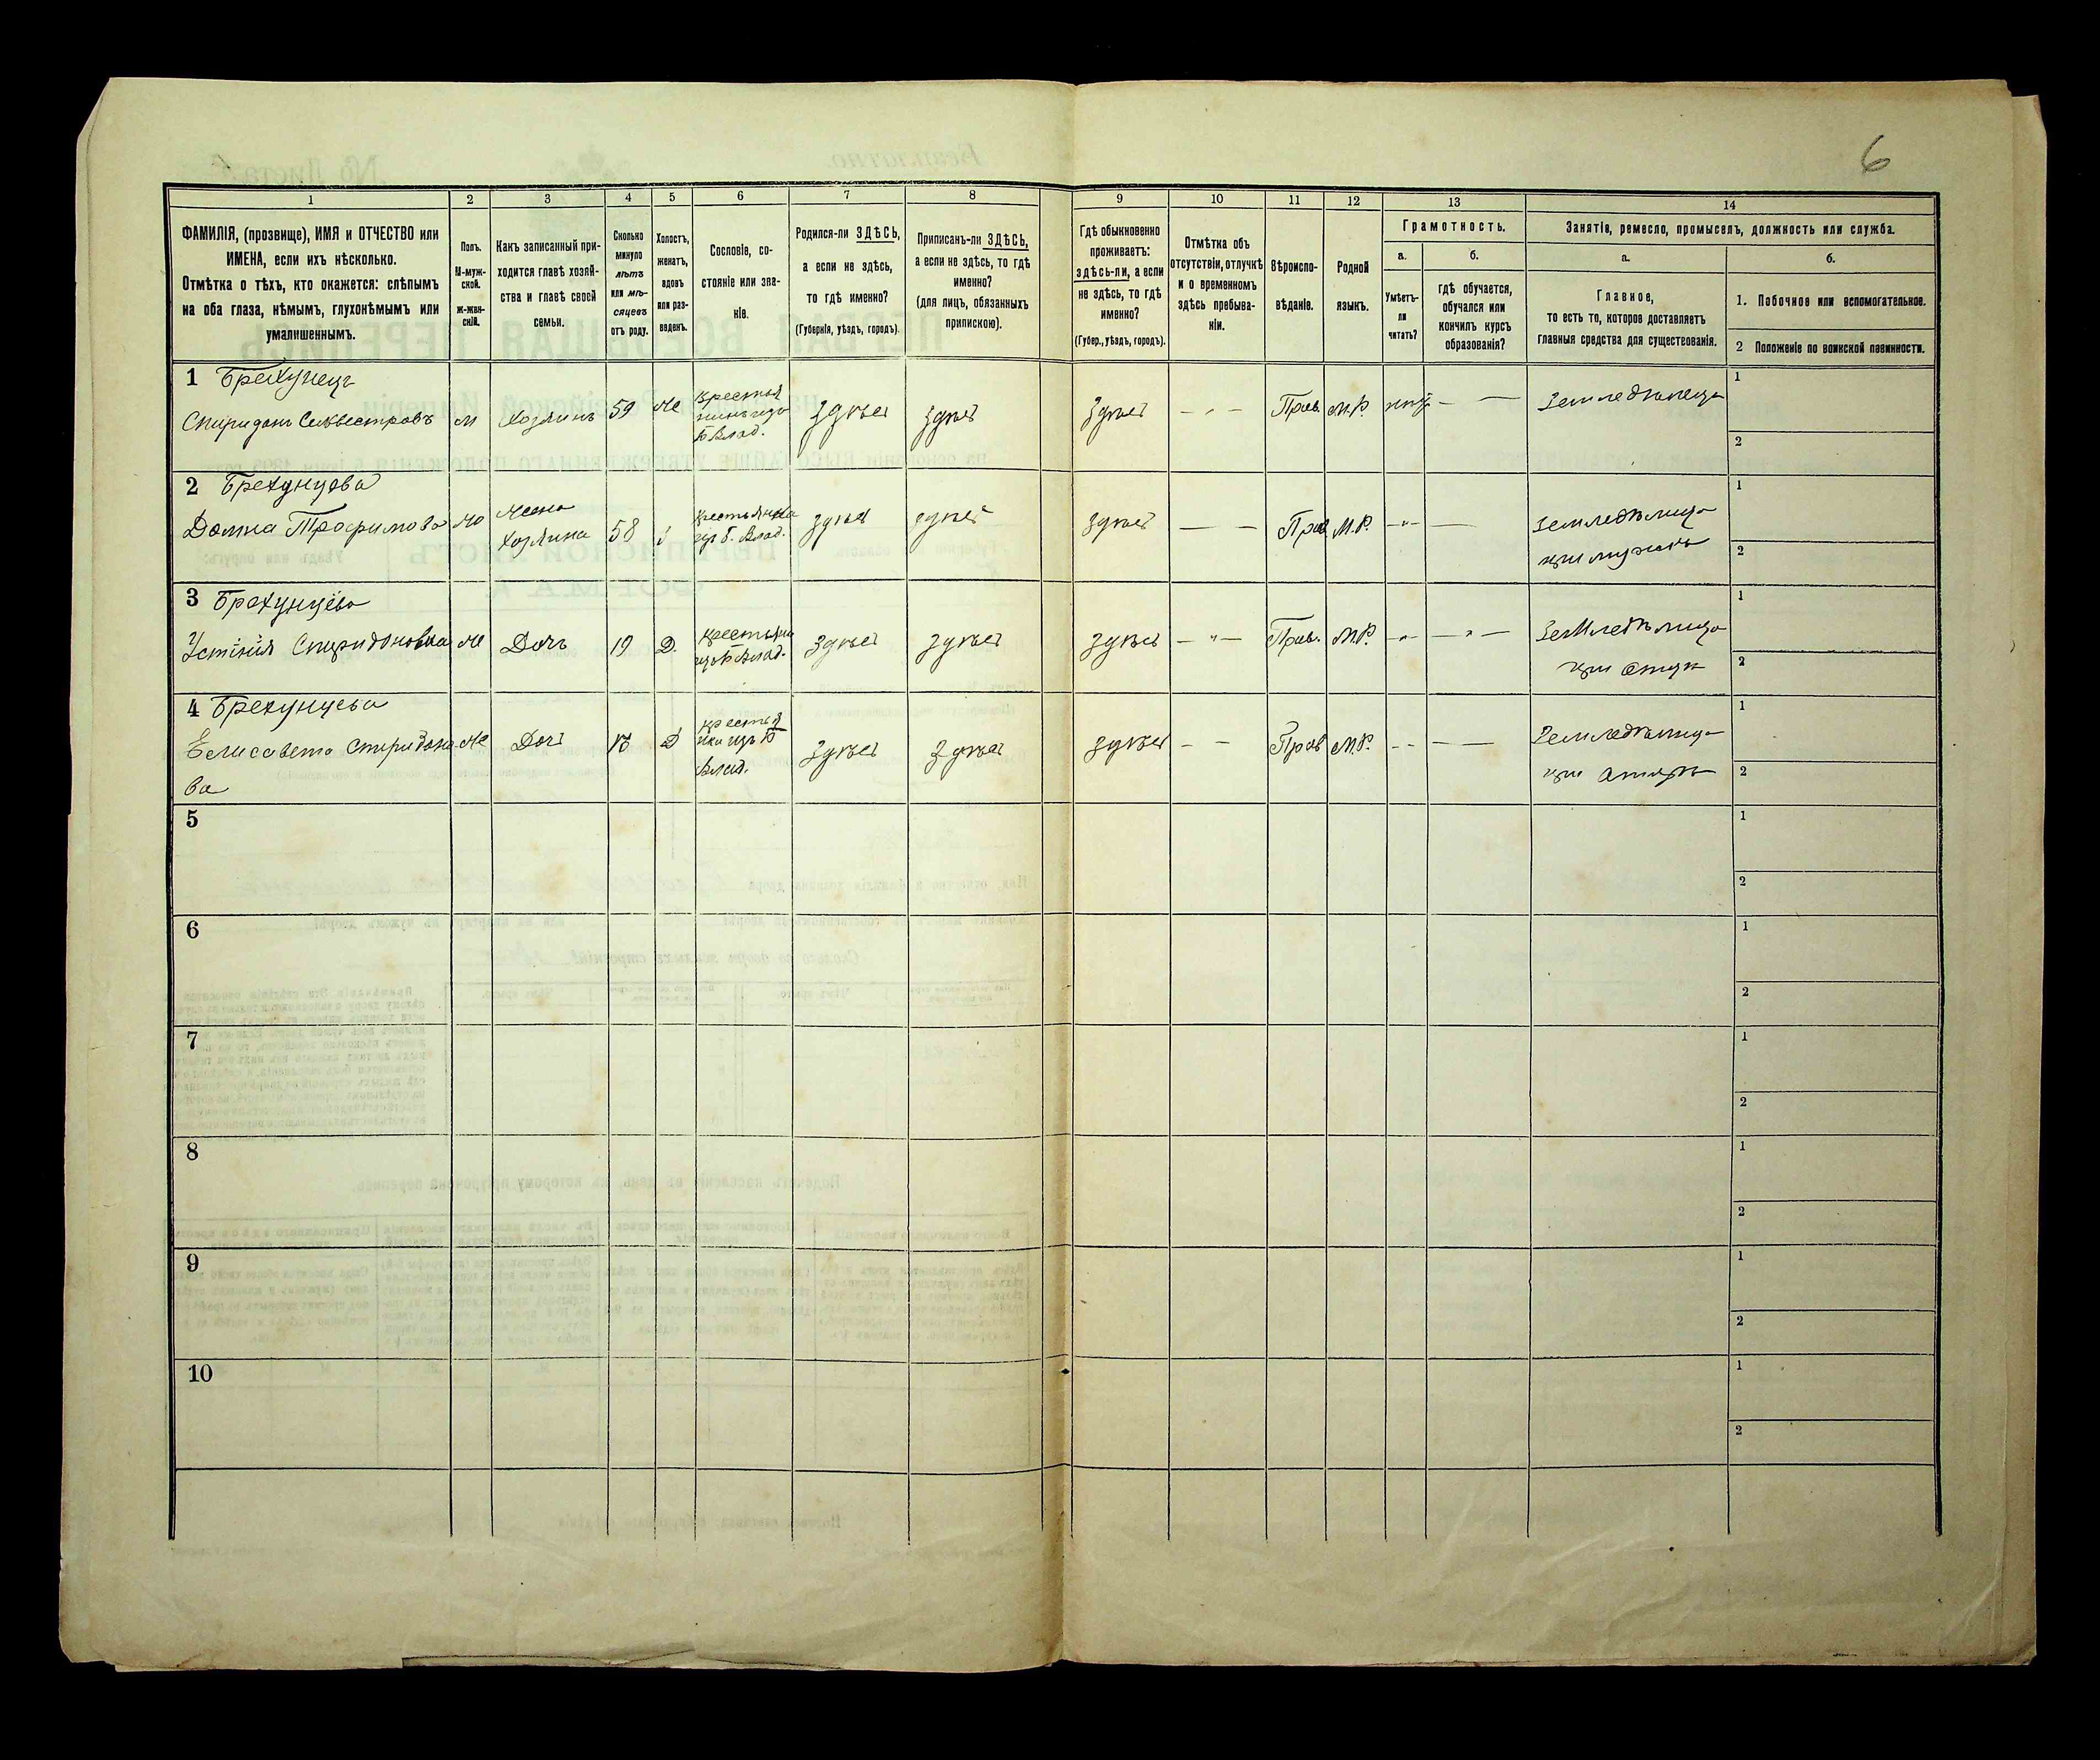 6
1
2
3
4
5
6
7
8
9
10
11
12
13
14
ФАМИЛІЯ, (прозвище), ИМЯ и ОТЧЕСТВО или
ИМЕНА, если ихъ нѣсколько.
Отмѣтка о тѣхъ, кто окажется: слѣпымъ
на оба глаза, нѣмымъ, глухонѣмымъ или
умалишеннымъ.
Полъ.
М-муж-
ской.
Ж-жен-
скій.
Какъ записанный при-
ходится главѣ хозяй-
ства и главѣ своей
семьи.
Сколько
минуло
лѣтъ
или мѣ-
сяцевъ
отъ роду.
Холостъ,
женатъ,
вдовъ
или раз-
веденъ.
Сословіе, со-
стояніе или зва-
ніе.
Родился-ли ЗДѢСЬ,
а если не здѣсь,
то гдѣ именно?
(Губернія, уѣздъ, городъ).
Приписанъ-ли ЗДѢСЬ,
а если не здѣсь, то гдѣ
именно?
(для лицъ, обязанныхъ
припискою).
Гдѣ обыкновенно
проживаетъ:
здѣсь-ли, а если
не здѣсь, то гдѣ
именно?
(Губер., уѣздъ, городъ).
Отмѣтка объ
отсутствіи, отлучкѣ
и о временномъ
здѣсь пребыва-
ніи.
Вѣроиспо-
вѣданіе.
Родной
языкъ.
Грамотность.
а.
Умѣетъ-
ли
читать?
б.
гдѣ обучается,
обучался или
кончилъ курсъ
образованія?
Занятіе, ремесло, промыселъ, должность или служба.
а.
Главное,
то есть то, которое доставляетъ
главныя средства для существованія.
б.
1. Побочное или вспомогательное.
2 Положеніе по воинской повинности.
1 Брехунецъ
Спиридонъ Сильвестровъ
м
Хозяинъ
59
же
Крестья
нинъ изъ
б Влад.
Здѣсь
здѣсь
Здѣсь
Прав.
М.Р.
нѣтъ
Земледѣлецъ
1
2
2 Брехунцова
Домна Трофимова
Же
Жена
Хозяина
58
крестьянка
изъ б. Влад.
здѣсь
здѣсь
здѣсь
Прав
М.Р.
Земледѣлица
при мужѣ
1
2
3 Брехунцёва
Устінія Спиридоновна
же
Дочь
19
Д.
изъ б Влад.
здѣсь
здѣсь
здѣсь
Прав.
М.Р.
Земледѣлица
при отцѣ
1
2
4 Брехунцева
Елисавета Спиридоно
ва
же
Дочь
Д
крестья
нка изъ б
Влад.
здѣсь
здѣсь
здѣсь
Прав
М.Р.
Земледѣлица
при
1
2
5
1
2
6
1
2
7
1
2
8
1
2
9
1
2
10
1
2